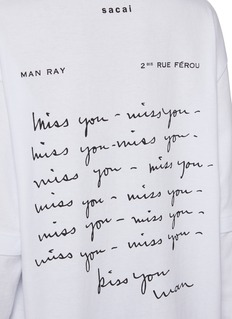 sacai
MAN RAY 2 BIS RUE FÉROU
miss you - miss you -
miss you - miss you -
miss you - miss you -
miss you - miss you -
miss you - miss you -
miss you - miss you -
kiss you
man